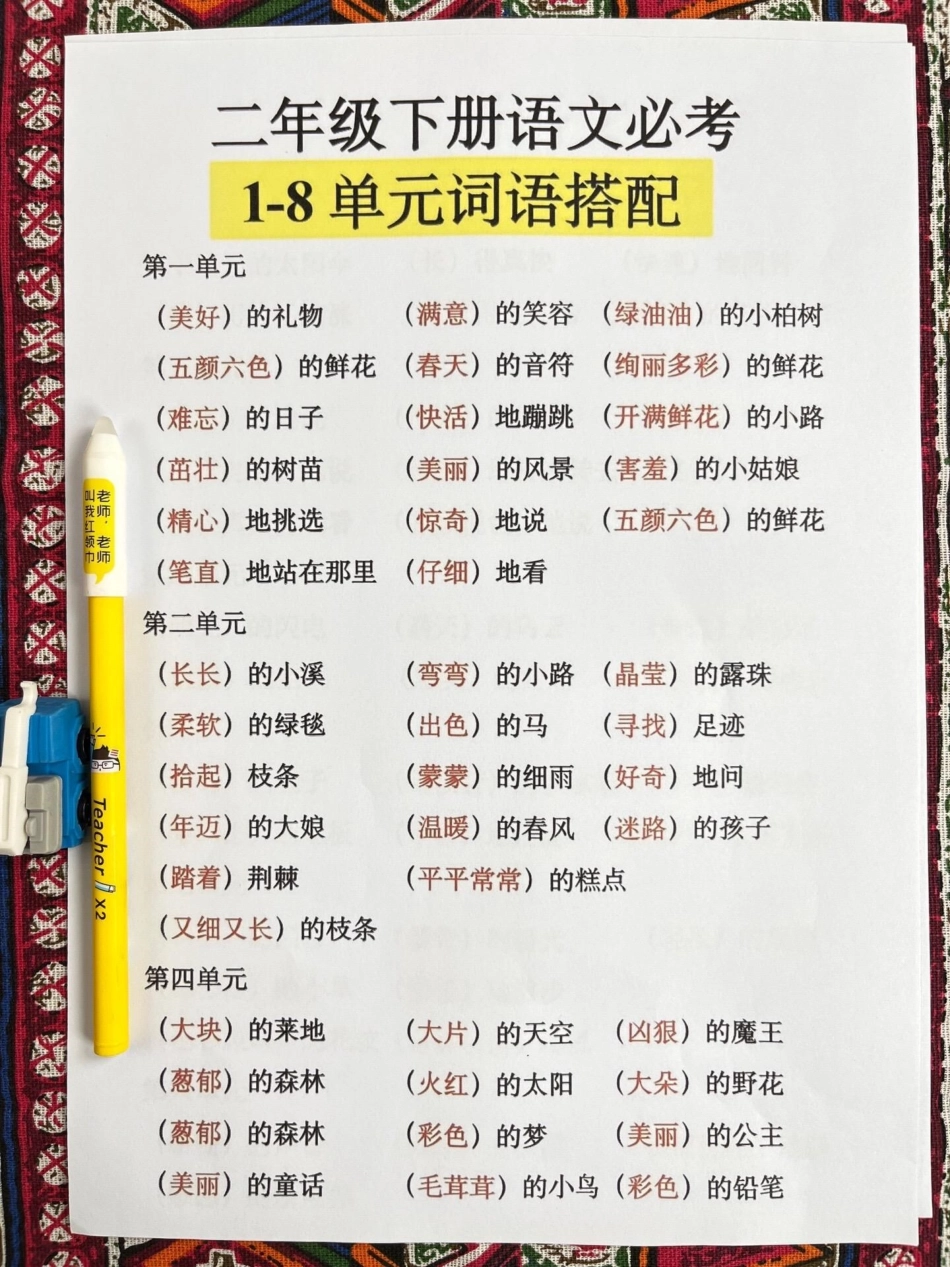 二年级下册语文必考
1-8 单元词语搭配
第一单元
（美好）的礼物 （满意）的笑容 （绿油油）的小柏树
（五颜六色）的鲜花 （春天）的音符 （绚丽多彩）的鲜花
（难忘）的日子 （快活）地蹦跳 （开满鲜花）的小路
（茁壮）的树苗 （美丽）的风景 （害羞）的小姑娘
（精心）地挑选 （惊奇）地说 （五颜六色）的鲜花
（笔直）地站在那里 （仔细）地看
第二单元
（长长）的小溪 （弯弯）的小路 （晶莹）的露珠
（柔软）的绿毯 （出色）的马 （寻找）足迹
（拾起）枝条 （蒙蒙）的细雨 （好奇）地问
（年迈）的大娘 （温暖）的春风 （迷路）的孩子
（踏着）荆棘 （平平常常）的糕点
（又细又长）的枝条
第四单元
（大块）的莱地 （大片）的天空 （凶狠）的魔王
（葱郁）的森林 （火红）的太阳 （大朵）的野花
（葱郁）的森林 （彩色）的梦 （美丽）的公主
（美丽）的童话 （毛茸茸）的小鸟 （彩色）的铅笔
老师，老师
叫我红领巾
Teacher X2